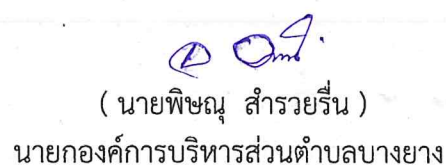 ( นายพิษณุ สำรวยรื่น )
นายกองค์การบริหารส่วนตำบลบางยาง